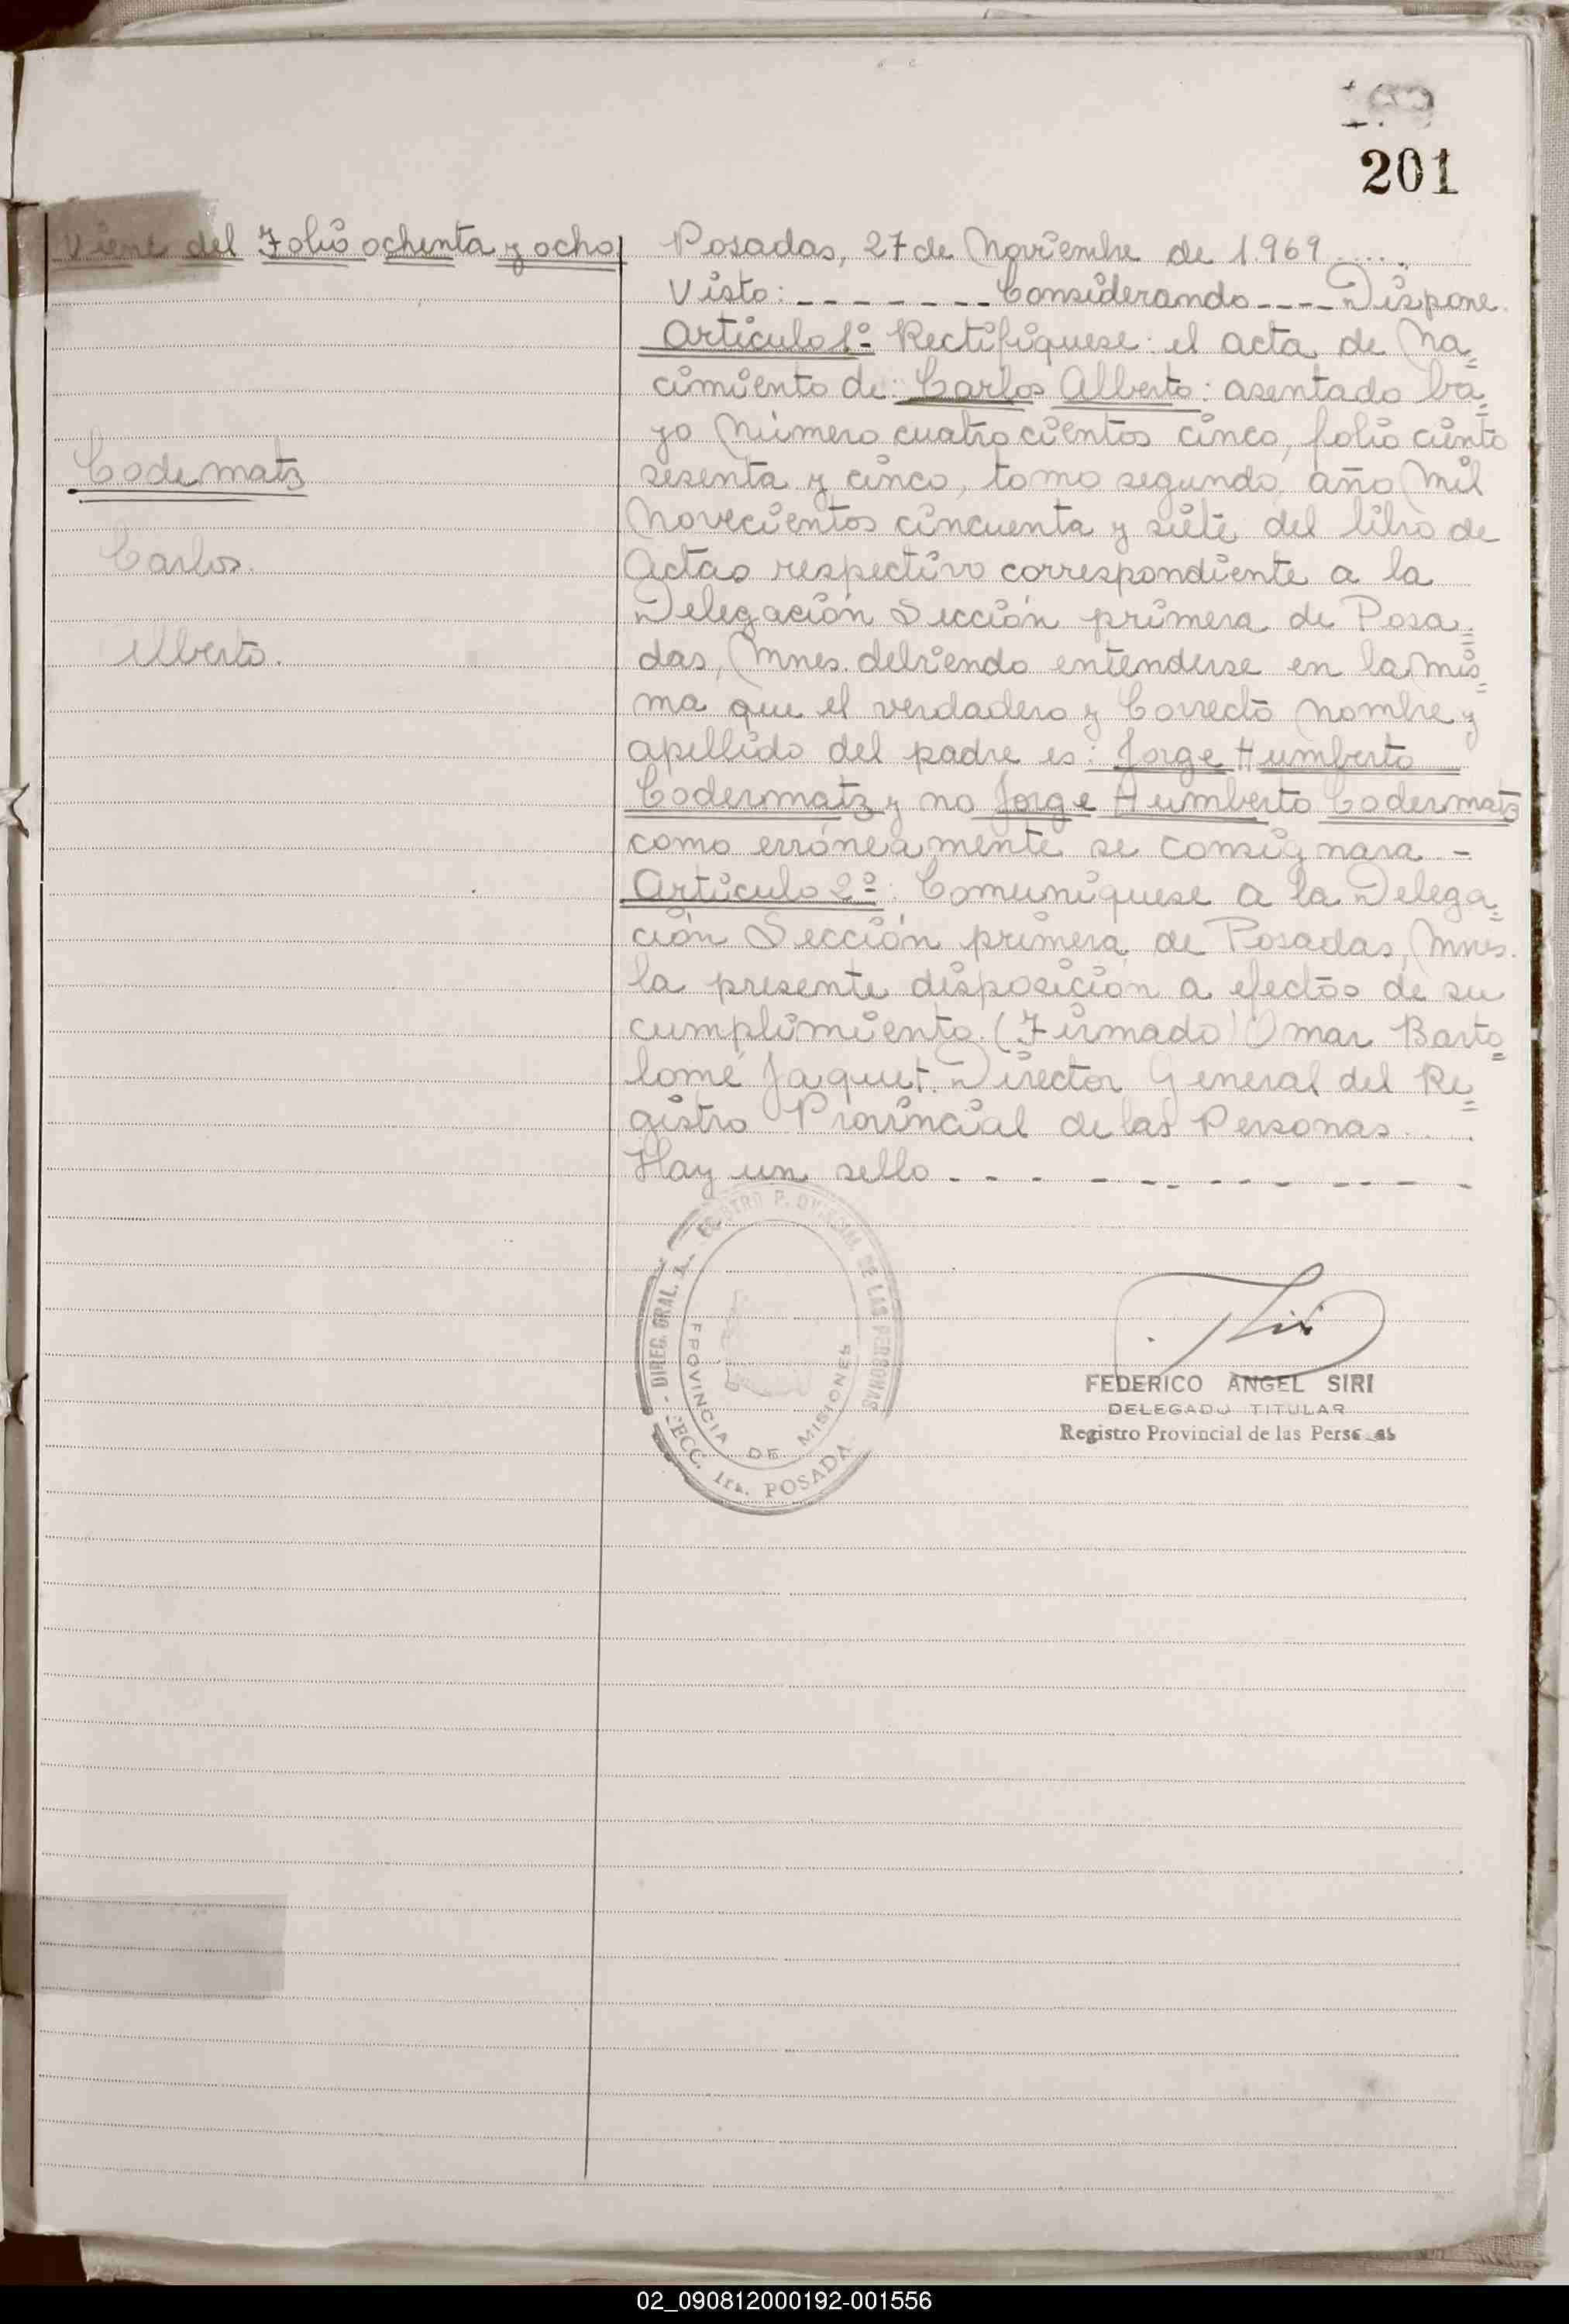 201
Viene del Folio ochenta y ocho
Codematz
Carlos.
Alberto.
Posadas, 27 de Noviembre de 1.969.....
Visto: - - - - - - - Considerando - - - - Dispone.
Artículo 1º- Rectifíquese: el acta de Na=
cimiento de: Carlos Alberto: asentado ba=
jo Número cuatrocientos cinco, folio ciento
sesenta y cinco, tomo segundo, año Mil
Novecientos cincuenta y siete del libro de
Actas respectivo correspondiente a la
Delegación Sección primera de Posa=
das, Mnes. debiendo entenderse en la mis=
ma que el verdadero y Correcto Nombre y
apellido del padre es: Jorge Humberto
Codermatz y no Jorge Humberto Codermatz
como erróneamente se consignara -
Artículo 2º: Comuníquese a la Delega=
ción Sección primera de Posadas, Mnes.
la presente disposición a efectos de su
cumplimiento. (Firmado) Omar Barto=
lomé Jaquet. Director General del Re=
gistro Provincial de las Personas....
Hay un sello - - - - - - - - - - - -
- DIREC. GRAL.
DE LAS PERSONAS
PROVINCIA DE MISIONES
SECC. 1ra. POSADA
FEDERICO ANGEL SIRI
DELEGADO TITULAR
Registro Provincial de las Personas
02_090812000192-001556